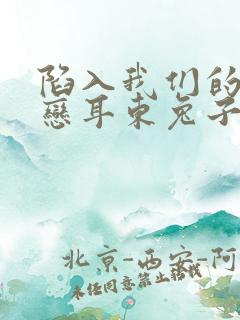 陷入我们的
戀耳东兔子
北京-西安-阿
未经同意禁止转载